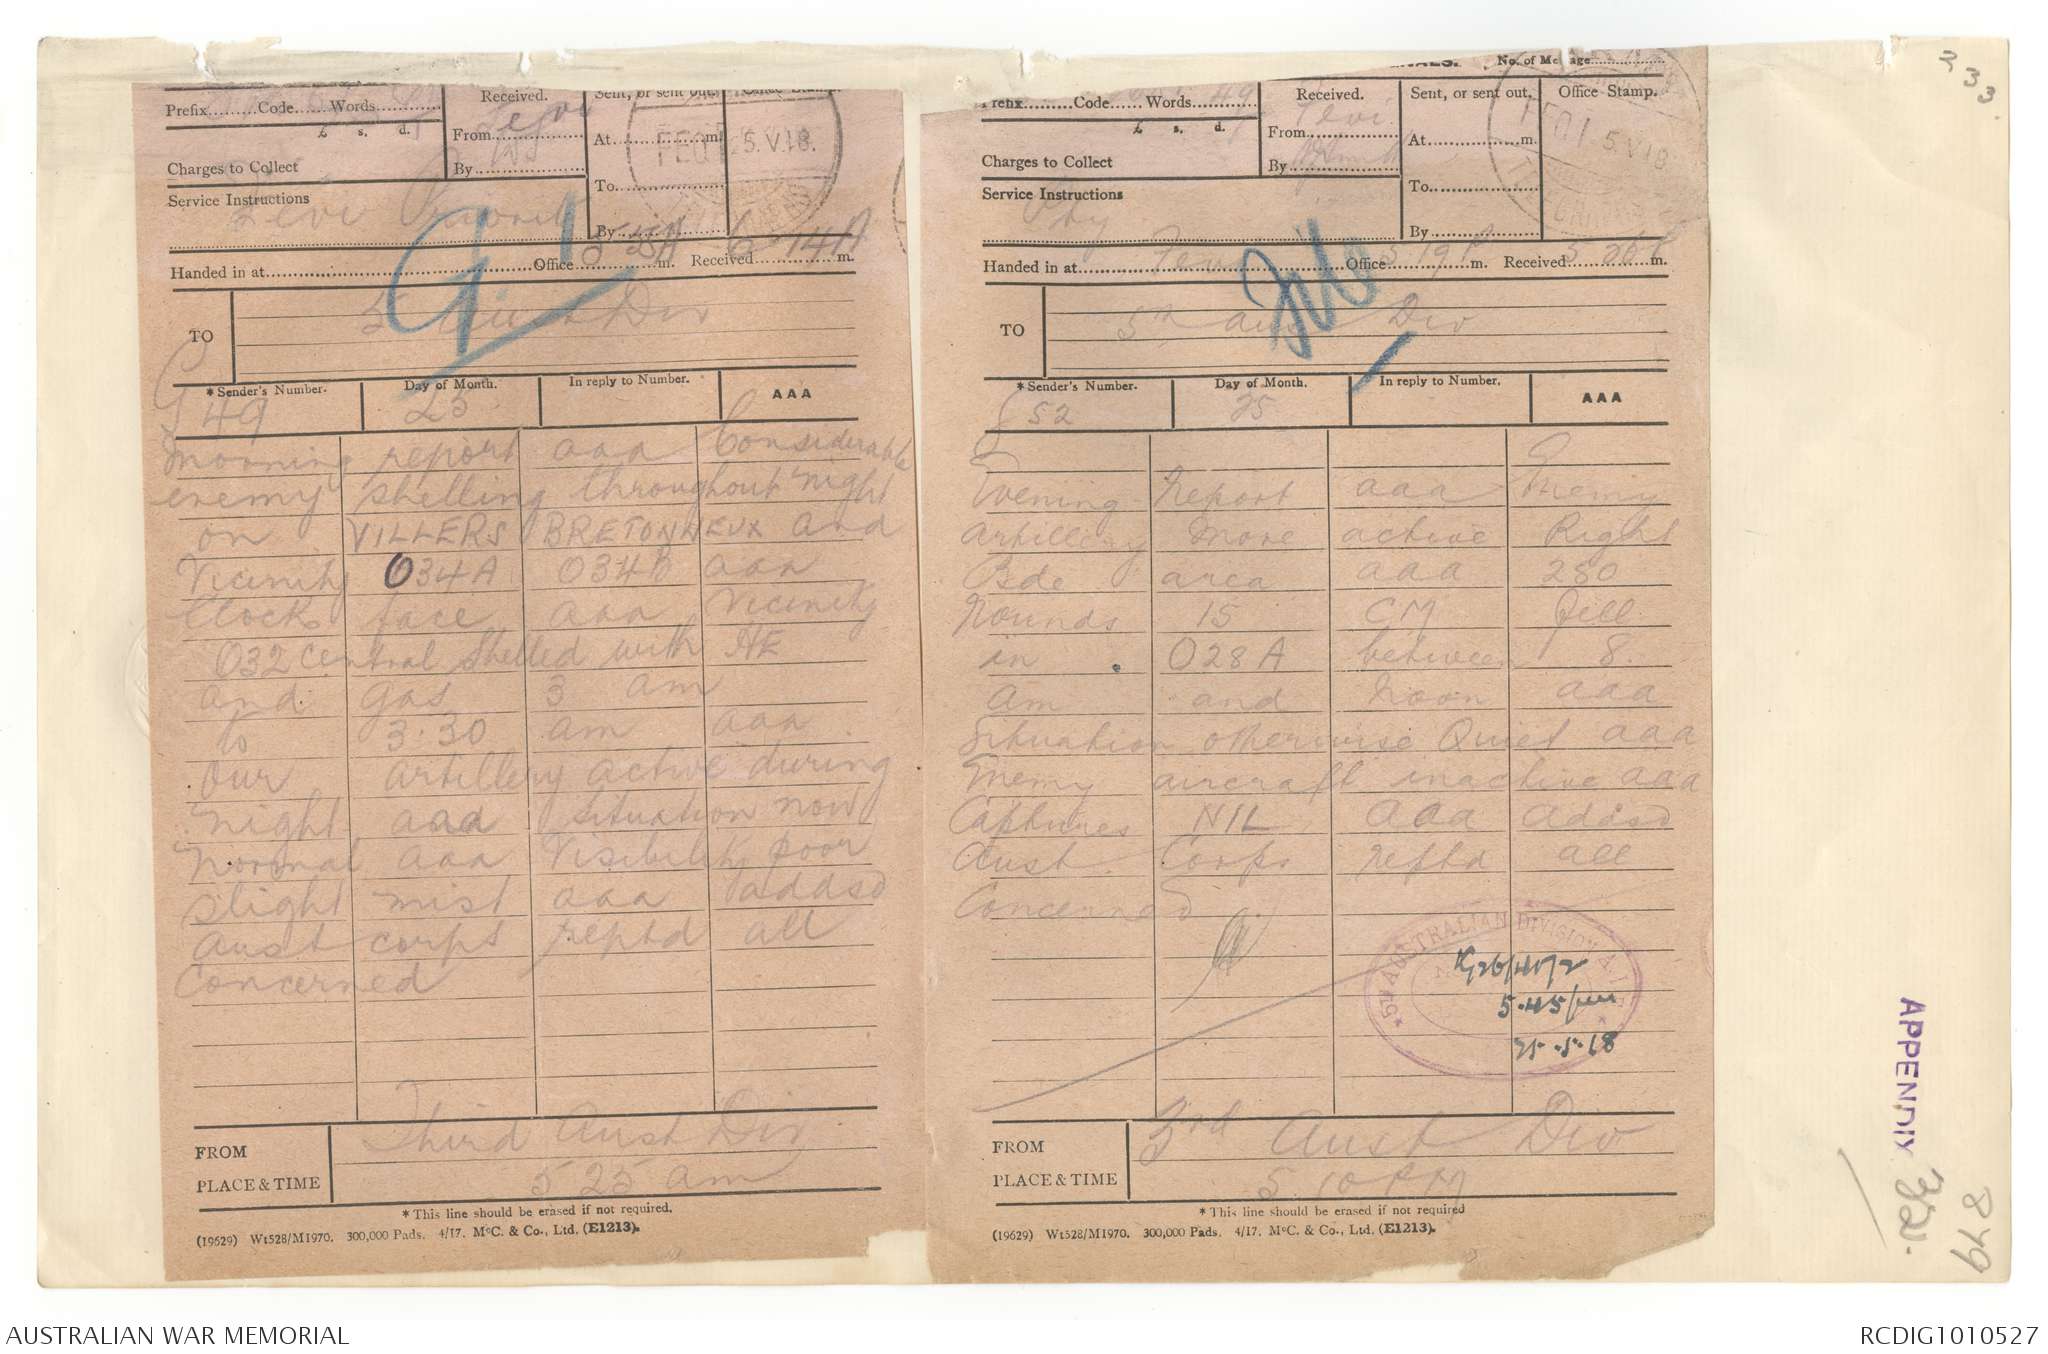 Prefix............Code.......Words.
£ s. d.
Charges to Collect
Service Instructions
Levi Priority
Received.
From Levi
By
Sent, or sent out.
At............m.
To
By
Office Stamp.
FEQ1 5.V.18.
Handed in at............Office 5 5A m. Received 6 14A m.
G
TO 5 Aust Div
*Sender's Number. Day of Month. In reply to Number. AAA
G 49 25
Morning report aaa Considerable
enemy shelling throughout night
on VILLERS BRETONNEUX and
Vicinity O34A O34B aaa
Clock face aaa vicinity
O32 Central Shelled with HE
and gas 3 am
to 3.30 am aaa
Our artillery active during
night aaa situation now
Normal aaa Visibility poor
slight mist aaa addsd
Aust corps reptd all
Concerned
FROM Third Aust Div
PLACE & TIME 5 25 am
*This line should be erased if not required.
(19629) Wt528/M1970. 300,000 Pads. 4/17. McC. & Co., Ltd. (E1213).
No. of Message
Prefix............Code......Words 49
£ s. d.
Charges to Collect
Service Instructions
Pty
Received.
From Levi
By
Sent, or sent out.
At............m.
To
By
Office Stamp.
FEQ1 5.V.18
TELEGRAPHS
Handed in at Levi Office 5 19 P m. Received 5 26 P m.
TO 5th Aust Div
*Sender's Number. Day of Month. In reply to Number. AAA
G 52 25
Evening report aaa Enemy
artillery more active Right
Bde area aaa 250
Rounds 15 CM fell
in O28A between 8
am and noon aaa
Situation otherwise Quiet aaa
Enemy aircraft inactive aaa
Captures NIL AAA addsd
Aust Corps reptd all
Concerned
5TH AUSTRALIAN DIVISION A.I.F.
G26/40/2
5.45 pm
25.5.18
FROM 3rd Aust Div
PLACE & TIME 5.10 PM
*This line should be erased if not required
(19629) Wt528/M1970. 300,000 Pads. 4/17. McC. & Co., Ltd. (E1213).
233
APPENDIX
879
AUSTRALIAN WAR MEMORIAL
RCDIG1010527